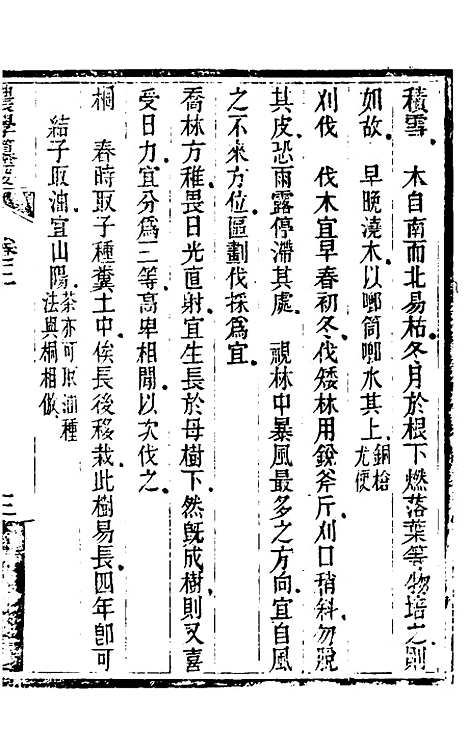 積雪　木自南而北易枯冬月於根下燃落葉等物培之則
如故　早晚澆木以啣筒啣水其上銅槍尤便
刈伐　伐木宜早春初冬伐矮林用銳斧斤刈口稍斜勿脫
其皮恐雨露停滯其處　視林中暴風最多之方向宜自風
之不來方位區劃伐採為宜
喬林方稚畏日光直射宜生長於母樹下然旣成樹則又喜
受日力宜分為三等高卑相間以次伐之
桐　春時取子種糞土中俟長後移栽此樹易長四年卽可
結子取油宜山陽茶亦可取油種法與桐相倣
農學纂要
卷二